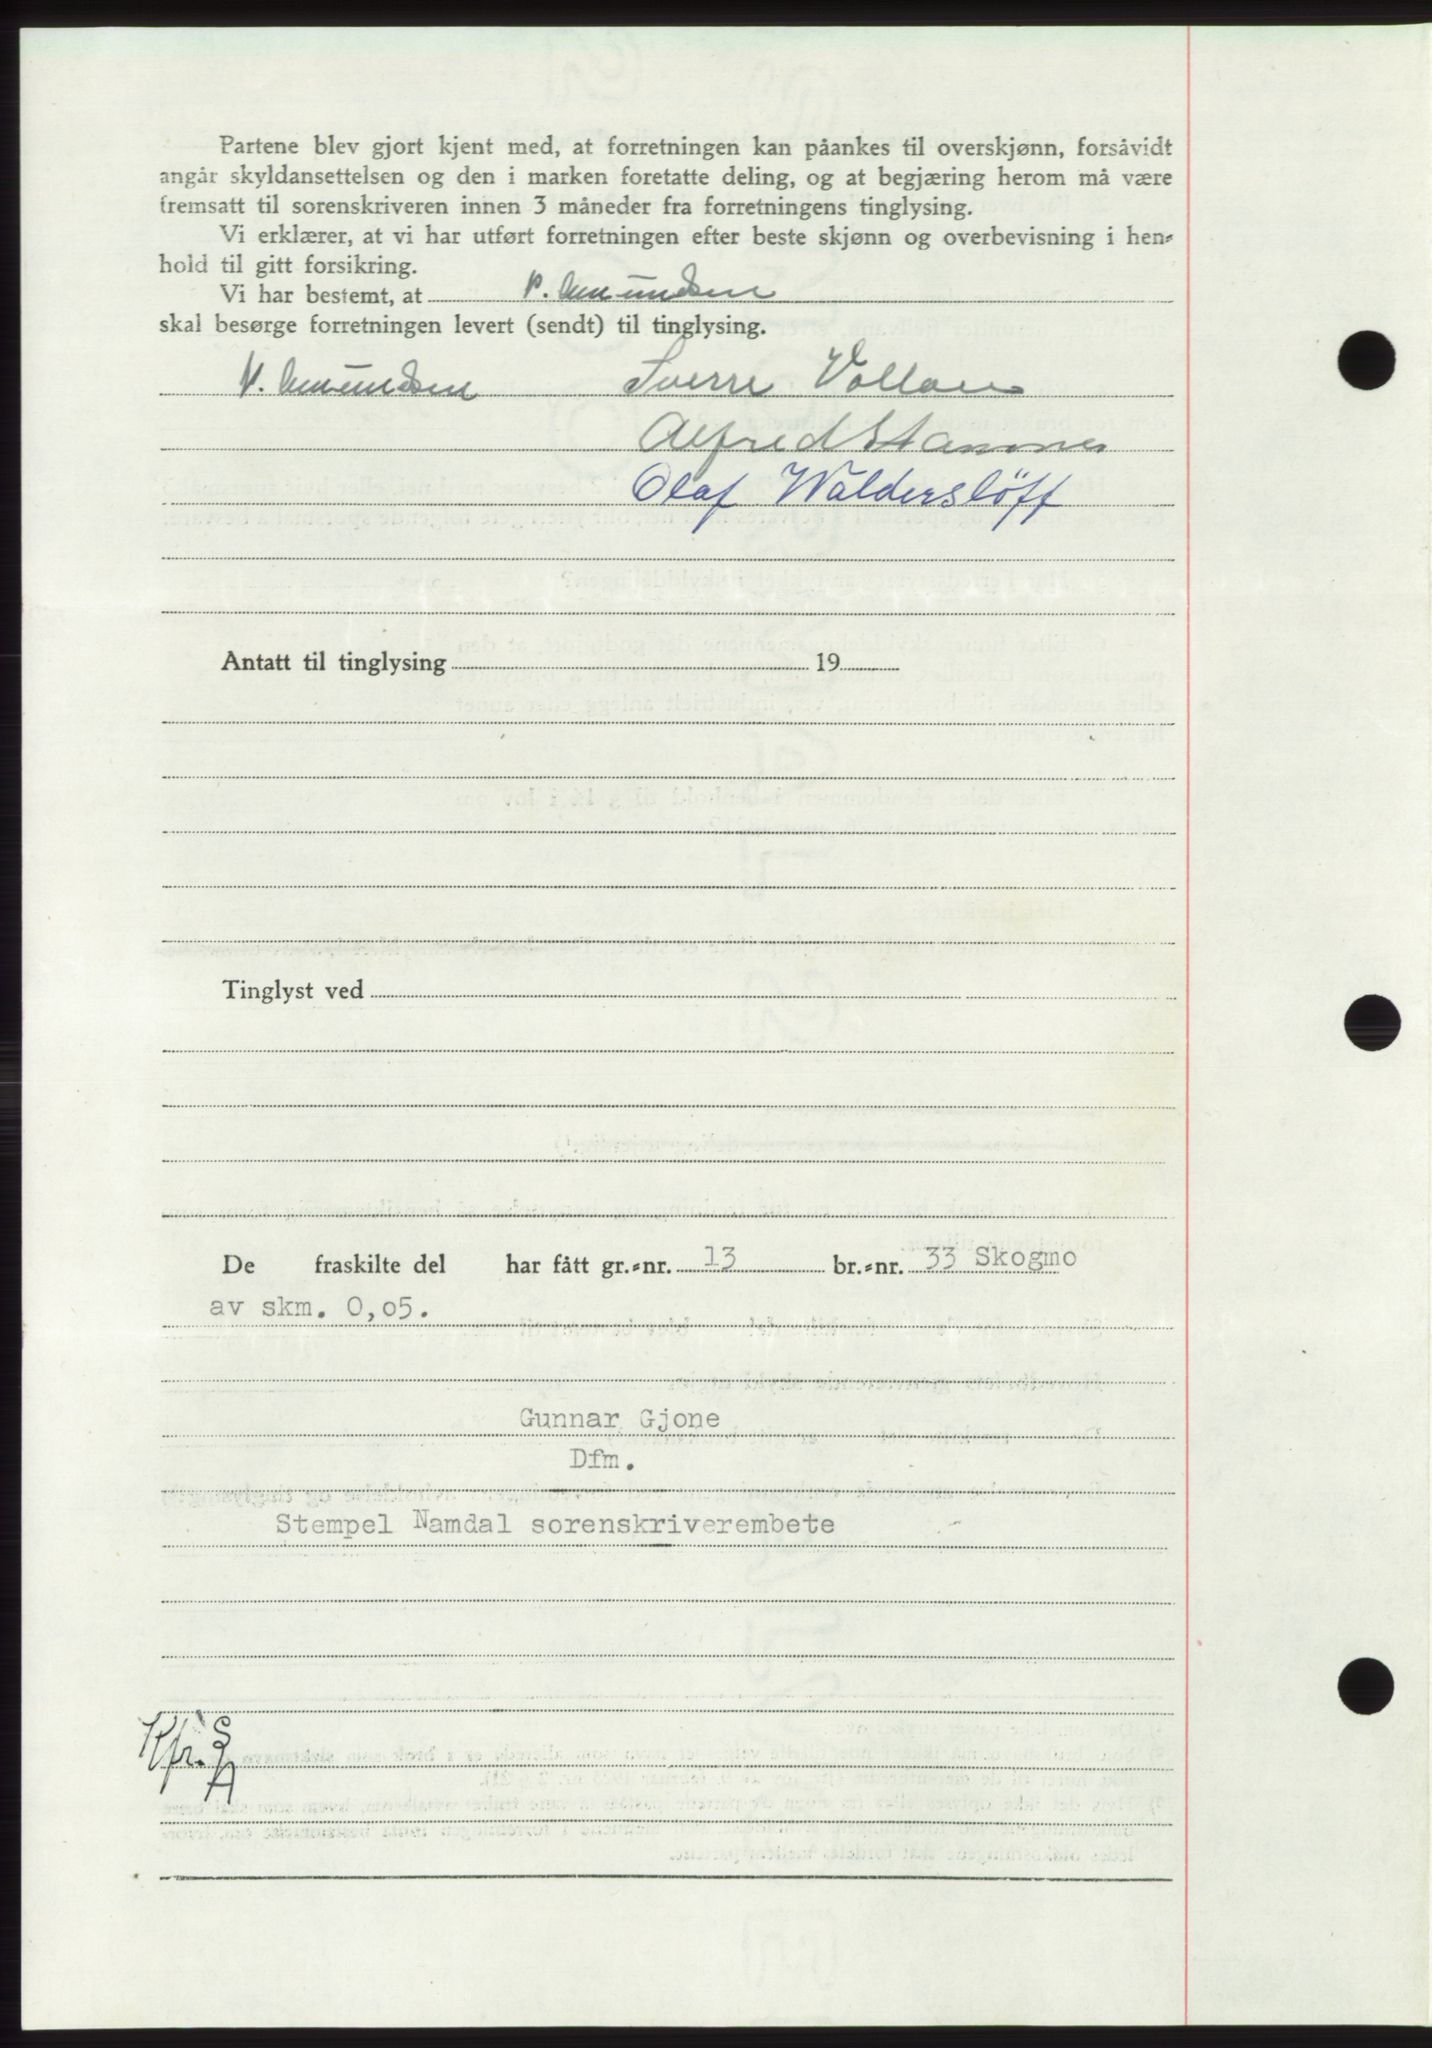 Partene blev gjort kjent med, at forretningen kan påankes til overskjønn, forsåvidt
angår skyldansettelsen og den i marken foretatte deling, og at begjæring herom må være
fremsatt til sorenskriveren innen 3 måneder fra forretningens tinglysing.
Vi erklærer, at vi har utført forretningen efter beste skjønn og overbevisning i hen-
hold til gitt forsikring.
Vi har bestemt, at P. Amundsen
skal besørge forretningen levert (sendt) til tinglysing.
P. Amundsen Sverre Vollan
Alfred Stamnes
Olaf Walderslöff
Antatt til tinglysing 19
Tinglyst ved
De fraskilte del har fått gr.-nr. 13 br.-nr. 33 Skogmo
av skm. 0,05.
Gunnar Gjone
Dfm.
Stempel Namdal sorenskriverembete
Kfr. S
A